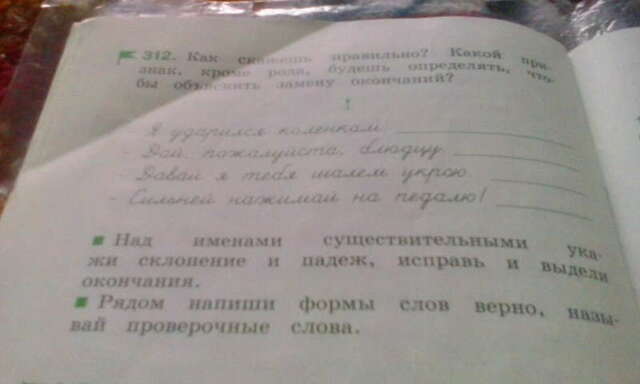 312. Как скажешь правильно? Какой при-
знак, кроме рода, будешь определять, что-
бы объяснить замену окончаний?
- Я ударился коленком.
- Дай, пожалуйста, блюдцу.
- Давай я тебя шалем укрою.
- Сильней нажимай на педалю!
Над именами существительными ука-
жи склонение и падеж, исправь и выдели
окончания.
Рядом напиши формы слов верно, назы-
вай проверочные слова.